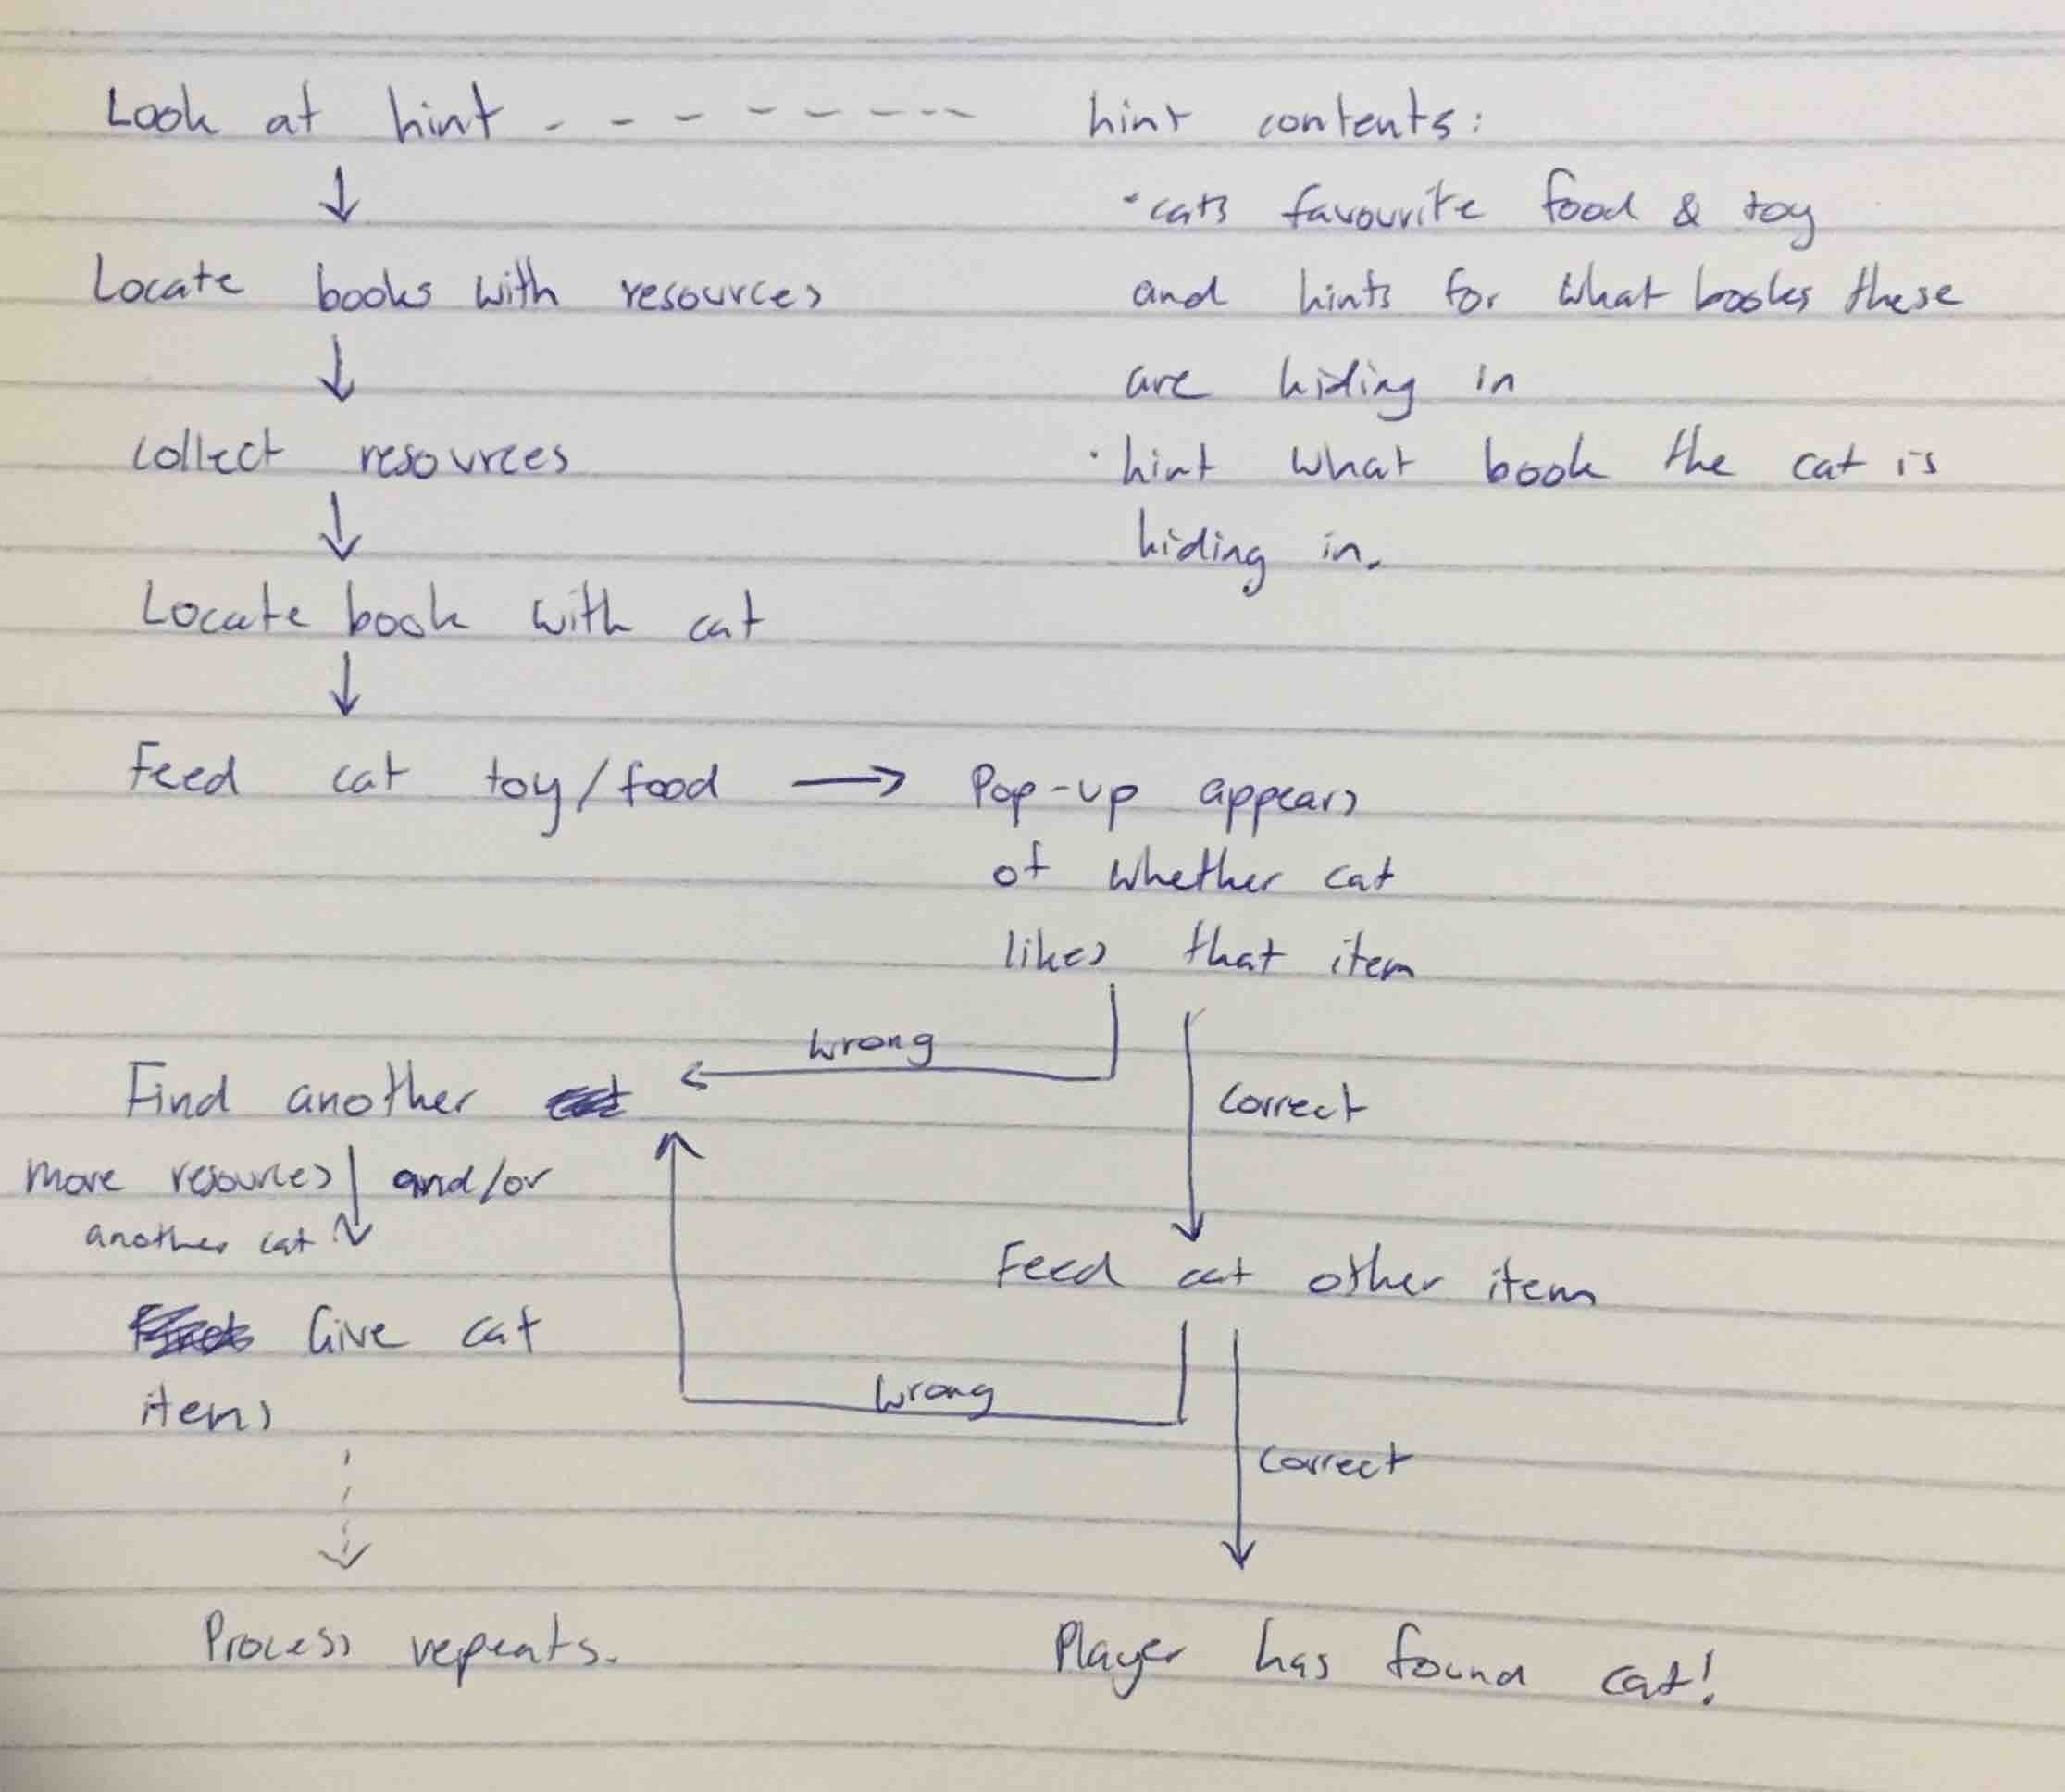 Look at hint
hint contents:
• cats favourite food & toy
and hints for what books these
are hiding in
• hint what book the cat is
hiding in.
Locate books with resources
collect resources
Locate book with cat
Feed cat toy/food
Pop-up appears
of whether cat
likes that item
wrong
correct
Find another
more resources and/or
another cat
Feed cat other item
Give cat
items
wrong
correct
Process repeats.
Player has found cat!